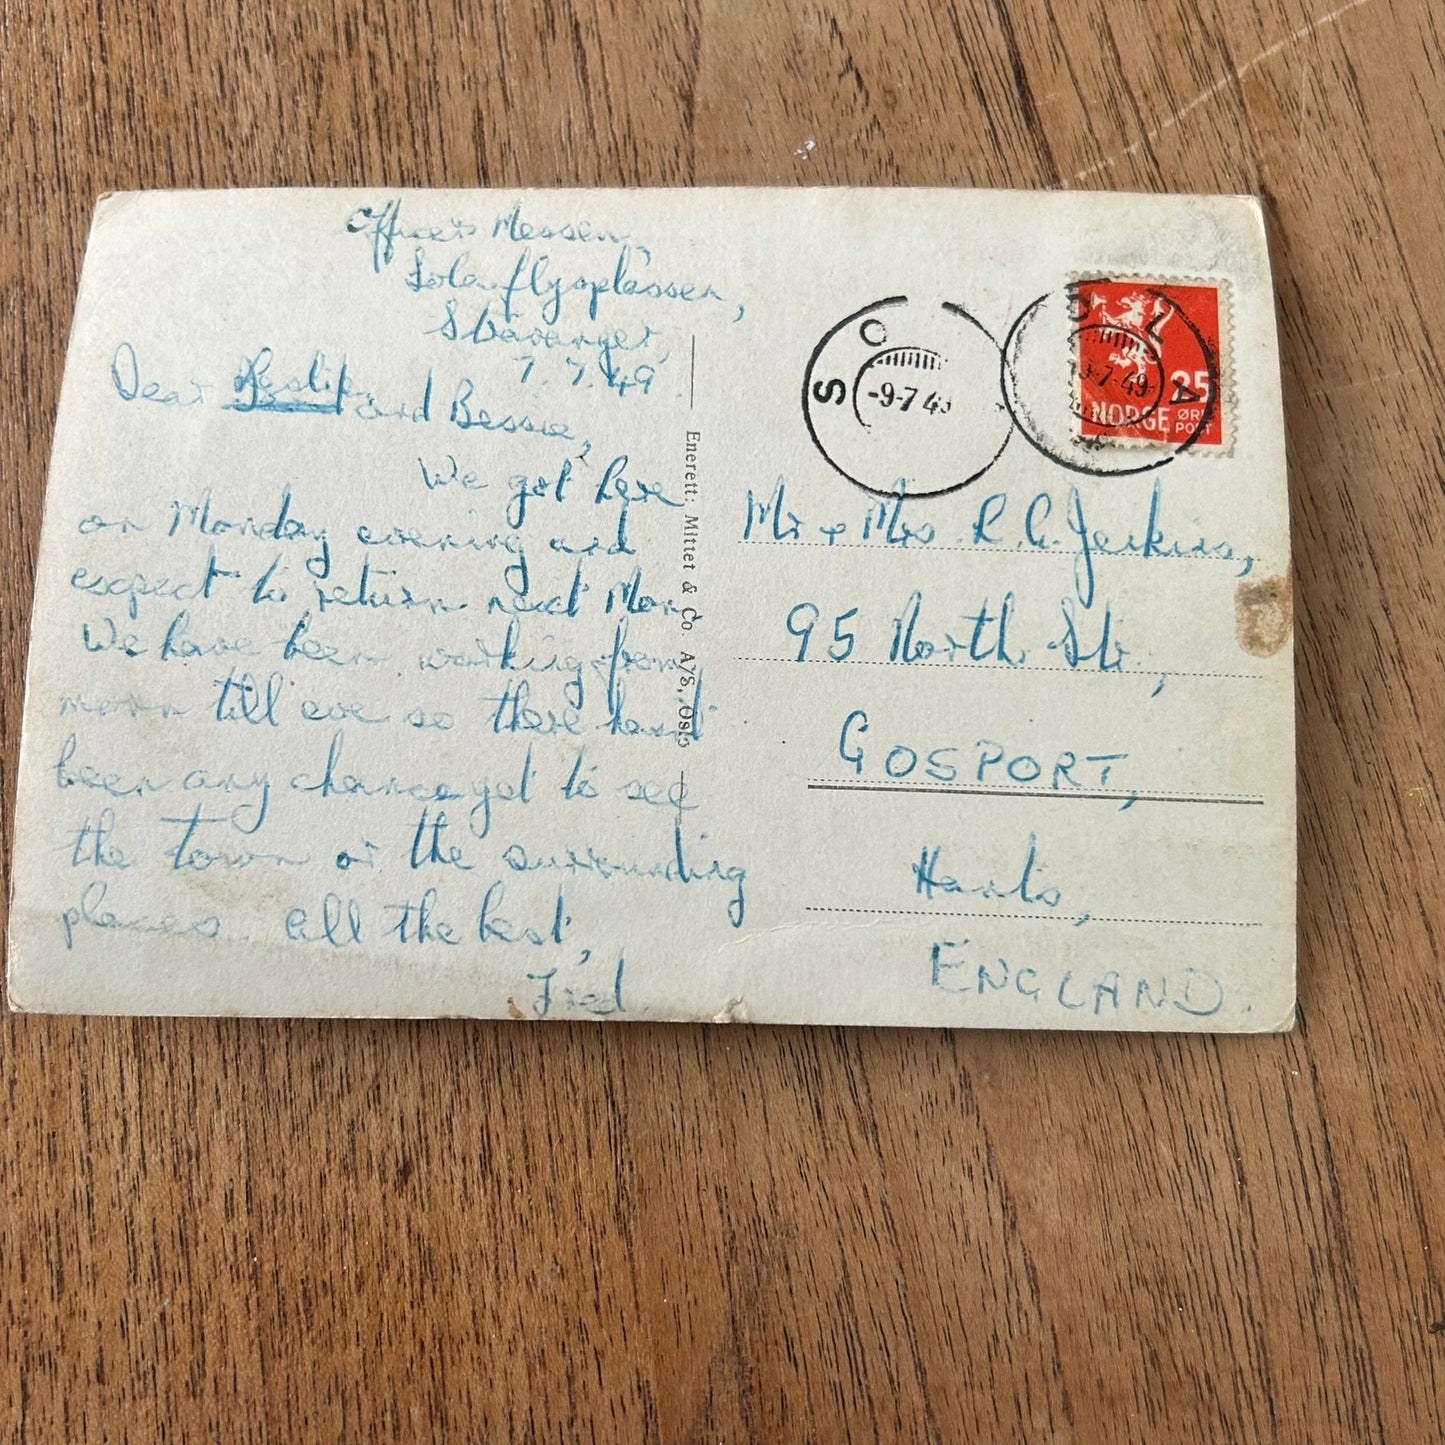 Officers Messen,
Sola flyoplassen,
Stavanger,
7.7.49
Dear Leslie and Bessie,
We got here
on Monday evening and
expect to return next Mon.
We have been working from
morn till eve so there hasnt
been any chance yet to see
the town or the surrounding
places. All the best,
Fred.
Enerett: Mittet & Co. A/S, Oslo
SOLA
-9-7 49
SOLA
-7-49
25
NORGE ØRE
POST
Mr & Mrs. L. G. Jenkins,
95 North St.,
GOSPORT,
Hants,
ENGLAND.